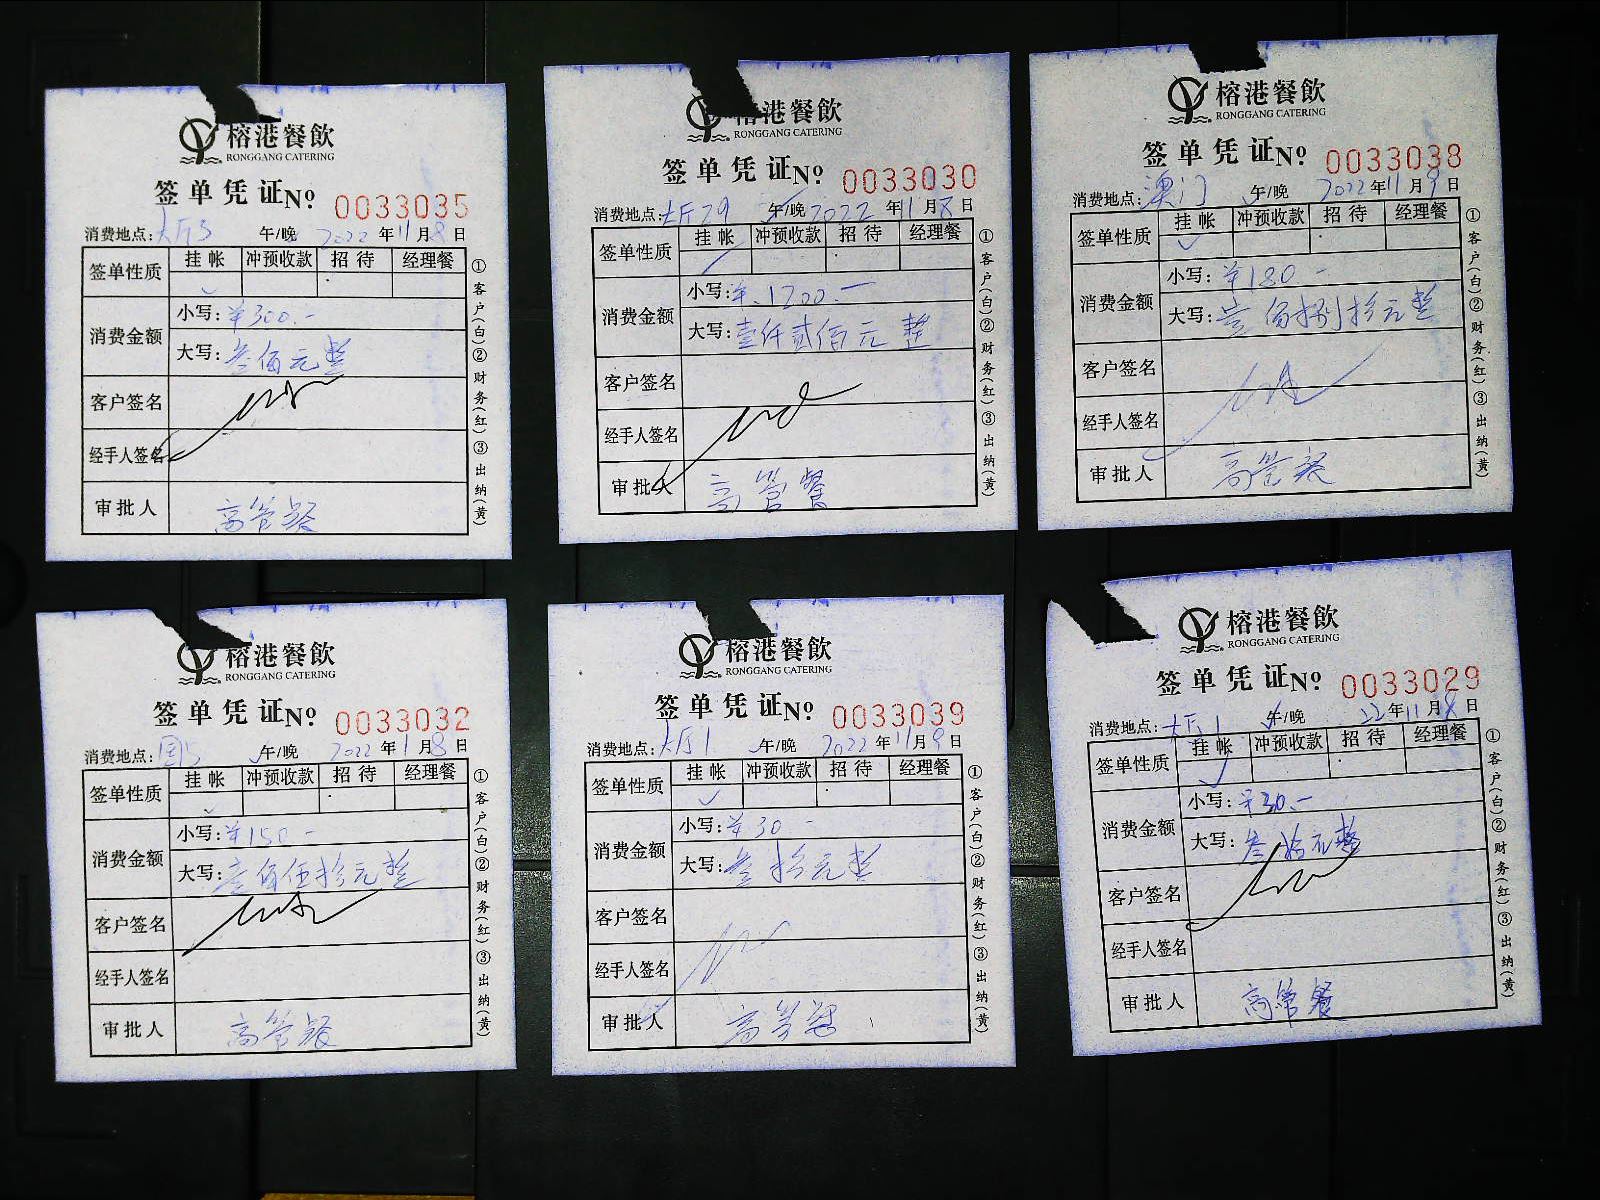 榕港餐飲
RONGGANG CATERING
签单凭证 No 0033035
消费地点: 大厅3 午/晚 2022年11月8日
签单性质 挂帐 冲预收款 招待 经理餐
消费金额 小写: ¥300.-
大写: 叁佰元整
客户签名
经手人签名
审批人 高管餐
①客户(白)②财务(红)③出纳(黄)
榕港餐飲
RONGGANG CATERING
签单凭证 No 0033030
消费地点: 大厅29 午/晚 2022年11月8日
签单性质 挂帐 冲预收款 招待 经理餐
消费金额 小写: ¥1200.-
大写: 壹仟贰佰元整
客户签名
经手人签名
审批人 高管餐
①客户(白)②财务(红)③出纳(黄)
榕港餐飲
RONGGANG CATERING
签单凭证 No 0033038
消费地点: 澳门 午/晚 2022年11月9日
签单性质 挂帐 冲预收款 招待 经理餐
消费金额 小写: ¥180-
大写: 壹佰捌拾元整
客户签名
经手人签名
审批人 高管餐
①客户(白)②财务(红)③出纳(黄)
榕港餐飲
RONGGANG CATERING
签单凭证 No 0033032
消费地点: 午/晚 2022年11月8日
签单性质 挂帐 冲预收款 招待 经理餐
消费金额 小写: ¥150-
大写: 壹佰伍拾元整
客户签名
经手人签名
审批人 高管餐
①客户(白)②财务(红)③出纳(黄)
榕港餐飲
RONGGANG CATERING
签单凭证 No 0033039
消费地点: 大厅1 午/晚 2022年11月9日
签单性质 挂帐 冲预收款 招待 经理餐
消费金额 小写: ¥30-
大写: 叁拾元整
客户签名
经手人签名
审批人 高管餐
①客户(白)②财务(红)③出纳(黄)
榕港餐飲
RONGGANG CATERING
签单凭证 No 0033029
消费地点: 大厅1 午/晚 22年11月8日
签单性质 挂帐 冲预收款 招待 经理餐
消费金额 小写: ¥30.-
大写: 叁拾元整
客户签名
经手人签名
审批人 高管餐
①客户(白)②财务(红)③出纳(黄)